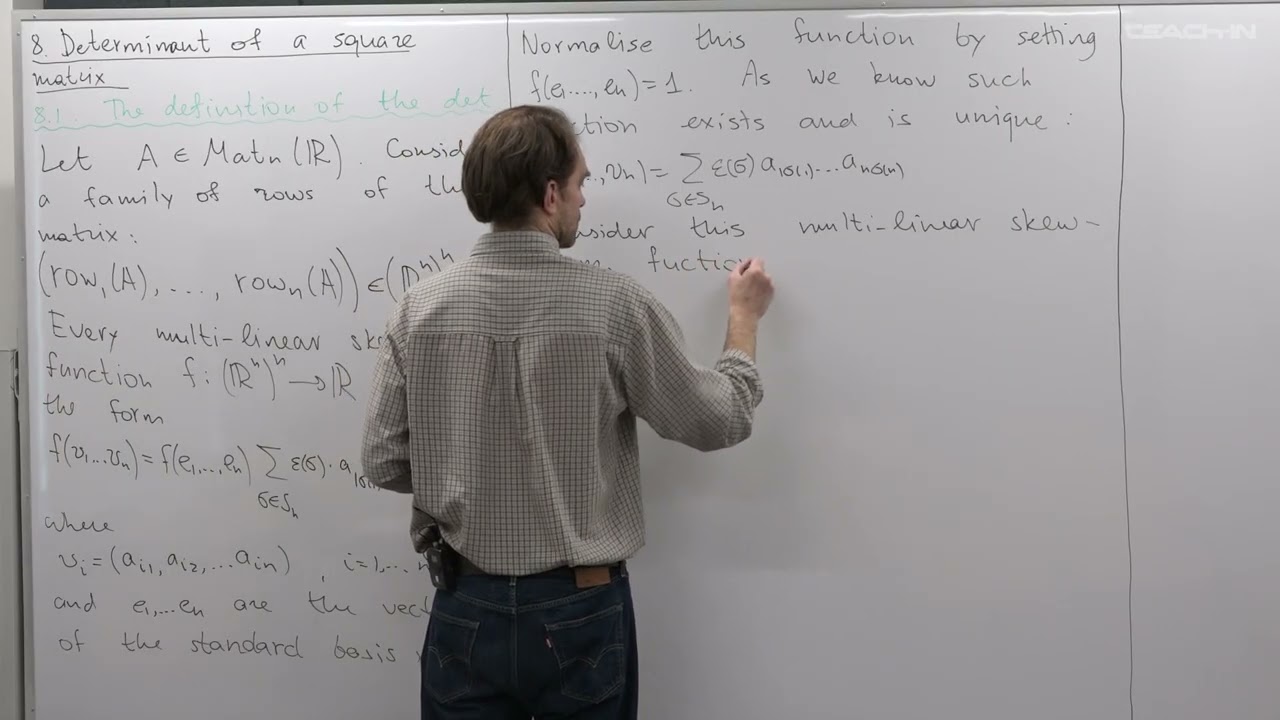 8. Determinant of a square
matrix
8.1. The definition of the det
Let A ∈ Matn (ℝ). Consid
a family of rows of th
matrix:
(row₁(A), ..., rowₙ(A)) ∈ (ℝⁿ)ⁿ
Every multi-linear ske
function f: (ℝⁿ)ⁿ → ℝ
the form
f(v₁...vₙ) = f(e₁,...,eₙ) ∑ ε(σ)·a
σ∈Sₙ
where
vᵢ = (aᵢ₁, aᵢ₂, ...aᵢₙ), i=1,...
and e₁,...eₙ are the vect
of the standard basis
Normalise this function by setting
f(e₁...., eₙ) = 1. As we know such
ction exists and is unique:
.., vₙ) = ∑ ε(σ) a₁σ(₁)...aₙσ(ₙ)
σ∈Sₙ
nsider this multi-linear skew-
m. fuctio
TEACH-IN